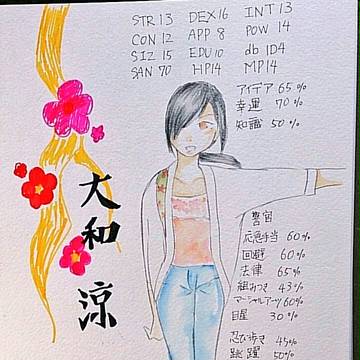 STR 13 DEX 16 INT 13
CON 12 APP 8 POW 14
SIZ 15 EDU 10 db 1D4
SAN 70 HP14 MP14
アイデア 65%
幸運 70%
知識 50%
大和 涼
警官
応急手当 60%
回避 60%
法律 65%
組みつき 43%
マーシャルアーツ 60%
目星 30%
忍び歩き 45%
跳躍 50%